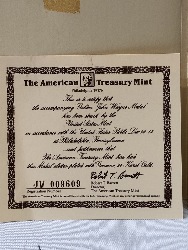 The American Treasury Mint
Philadelphia 1979
This is to certify that
the accompanying Golden "John Wayne Medal"
has been struck by the
United States Mint
in accordance with the United States Public Law 96-15
at Philadelphia, Pennsylvania
and furthermore that
The American Treasury Mint has had
this Medal electro-plated with Genuine 24 Karat Gold.
JW 009609
Registration Number
Robert T. Barrett
Director
The American Treasury Mint